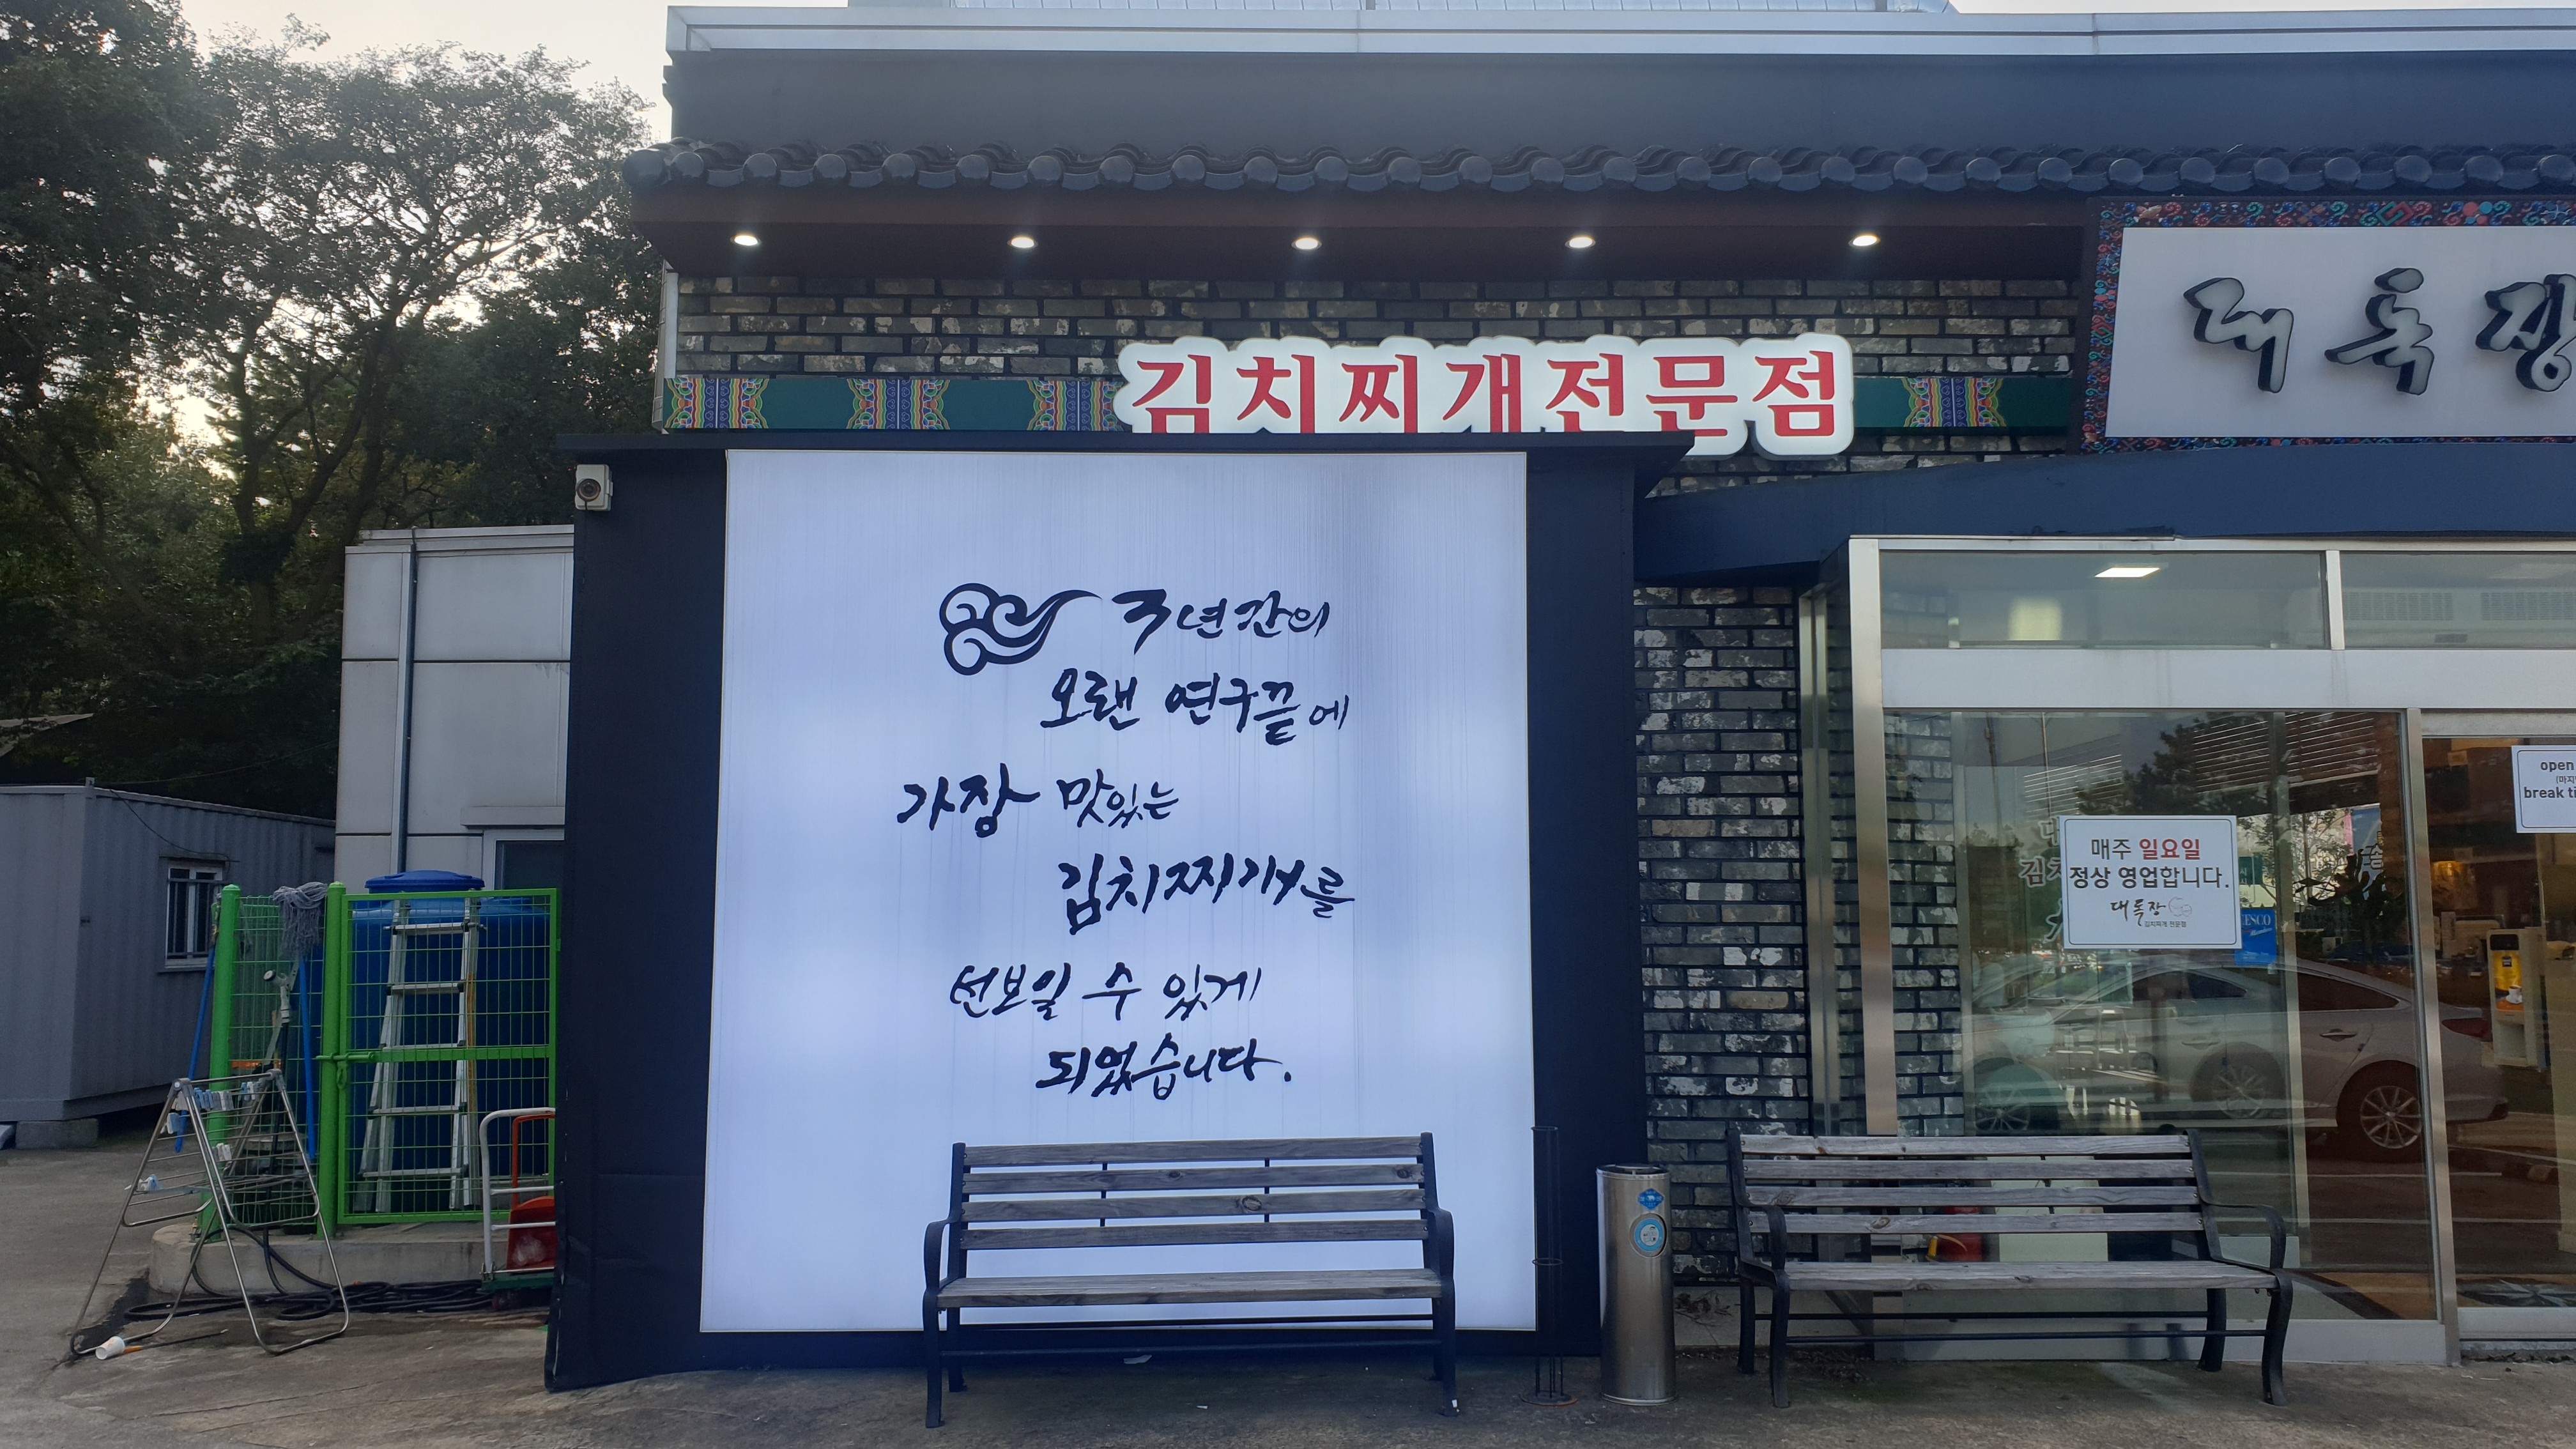 김치찌개전문점
대독장
3년간의
오랜 연구끝에
가장 맛있는
김치찌개를
선보일 수 있게
되었습니다.
매주 일요일
정상 영업합니다.
대독장
김치찌개 전문점
open
break